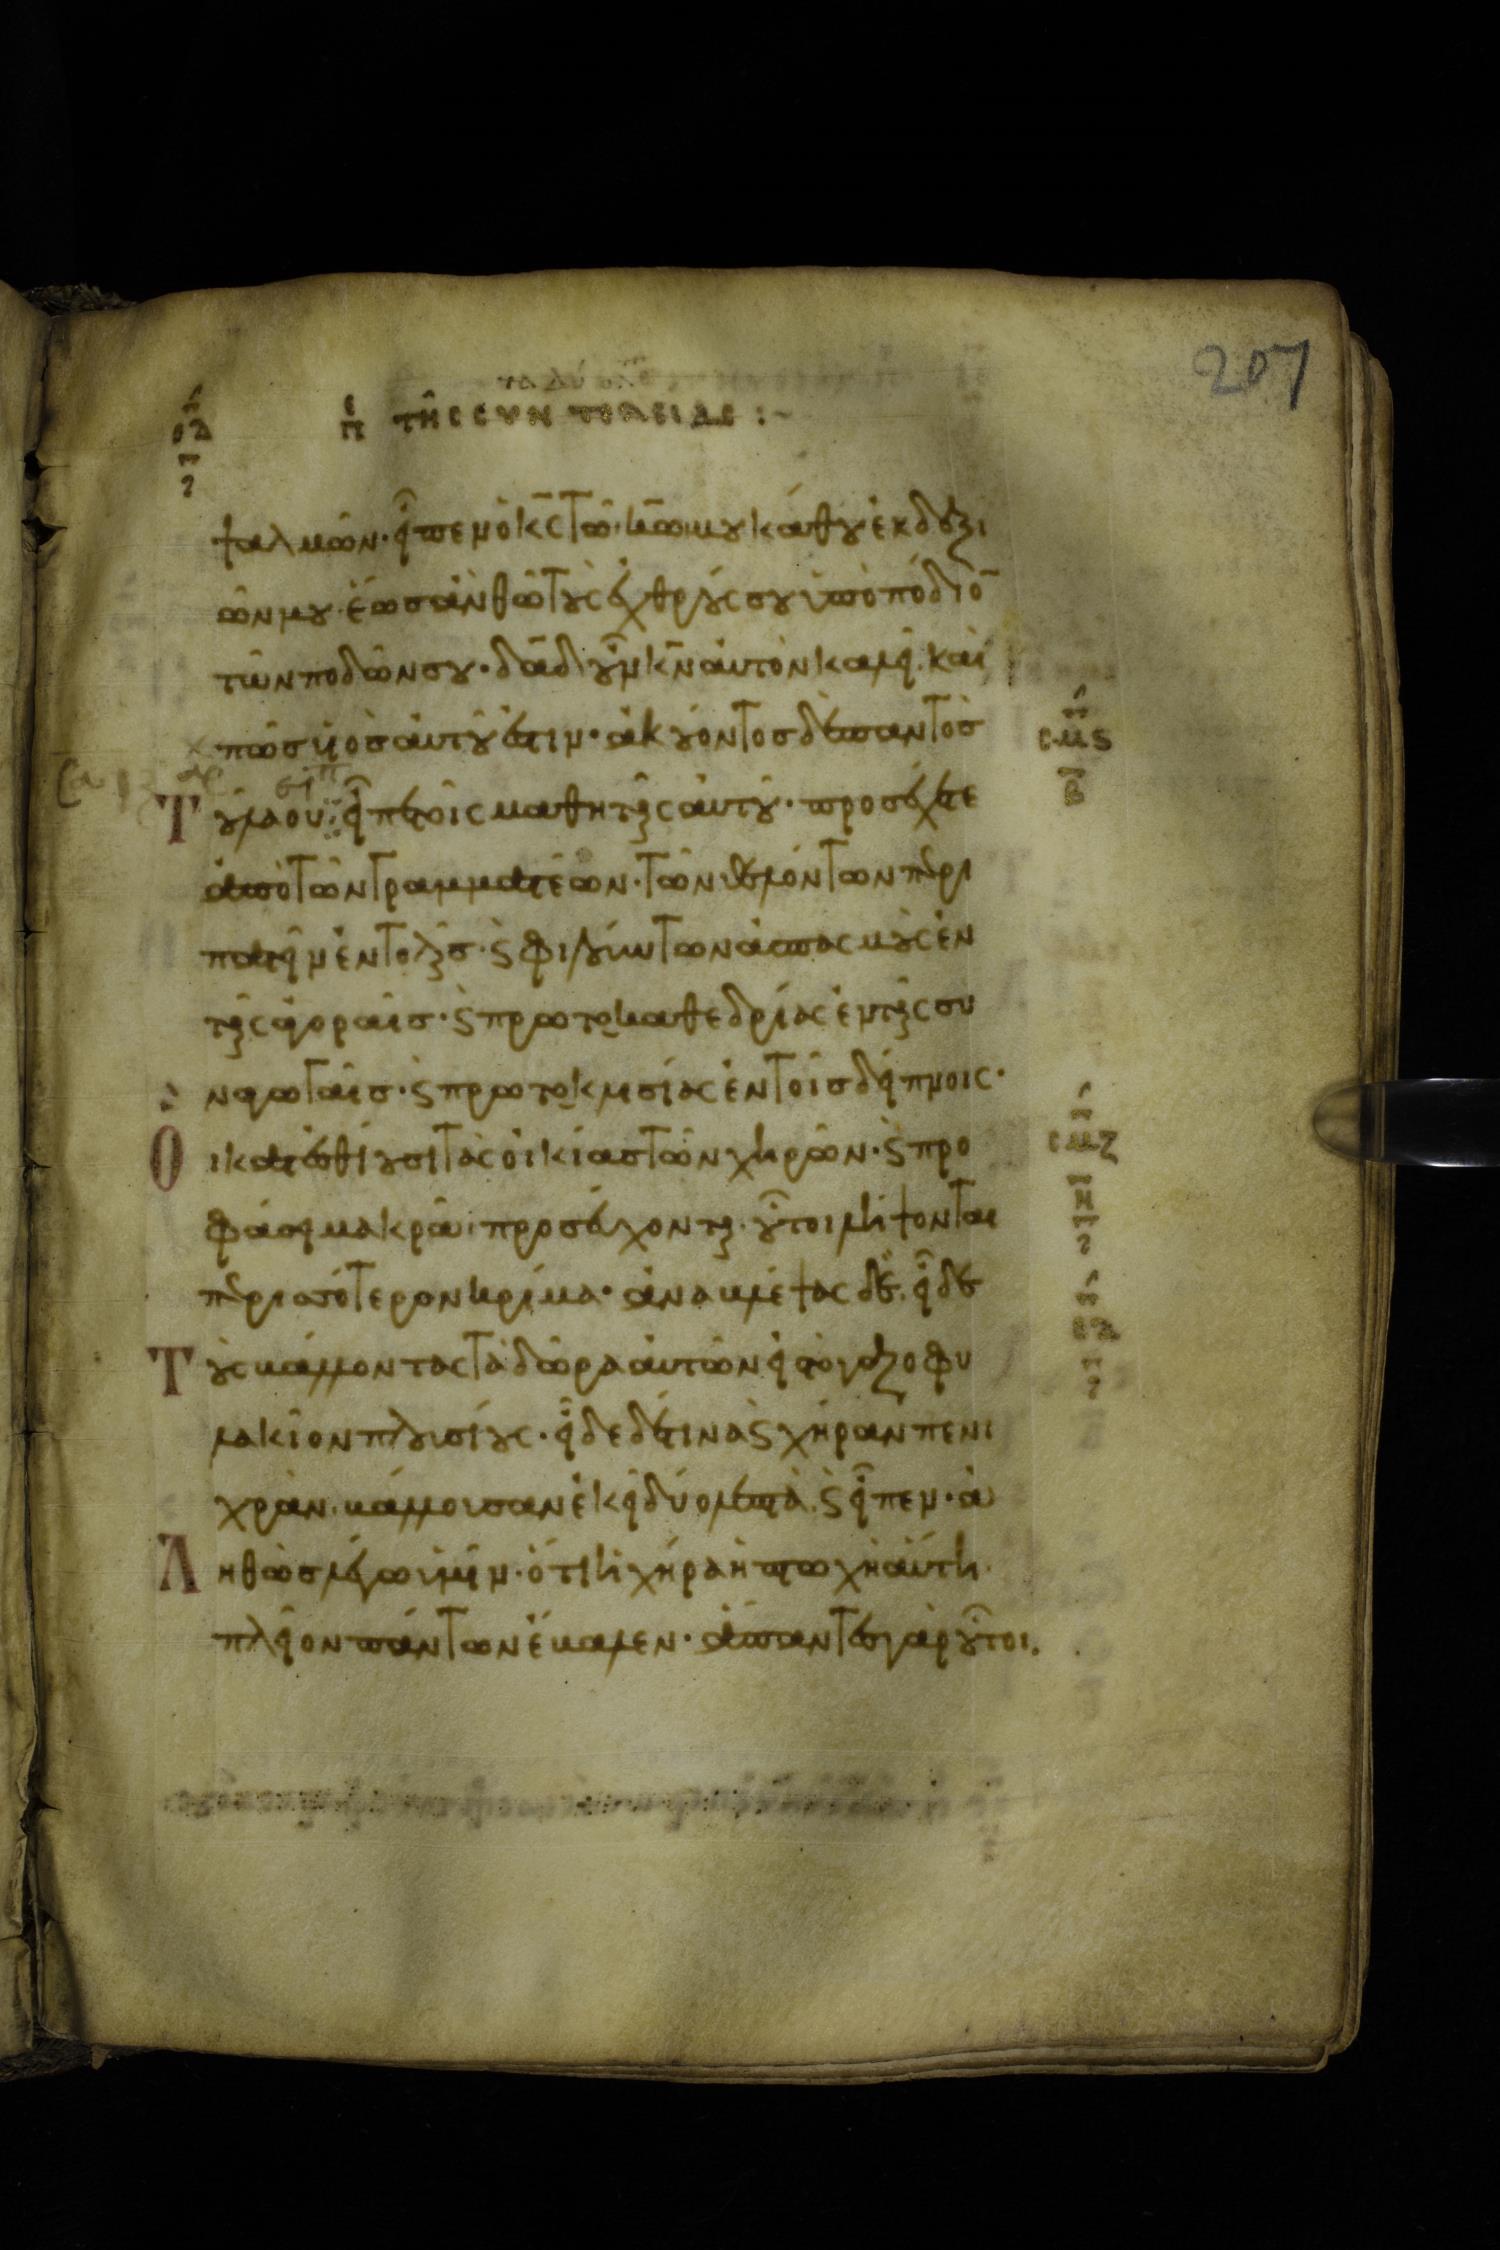 207
π τῆς συντελείας :~
ψαλμῶν· εἶπεν ὁ κ̅ς̅ τῶ κ̅ω̅ μου κάθου ἐκ δεξι
ῶν μου· ἕως ἂν θῶ τοὺς ἐχθρούς σου ὑποπόδιο̅
τῶν ποδῶν σου· δ̅α̅δ̅ οὖν κ̅ν̅ αὐτὸν καλεῖ. καὶ
πῶς υἱὸς αὐτοῦ ἐστιν· ἀκούοντος δὲ παντὸς
Τοῦ λαοῦ· εἶπε τοῖς μαθηταῖς αὐτοῦ· προσέχετε
ἀπὸ τῶν γραμματέων· τῶν θελόντων περι
πατεῖν ἐν στολαῖς· ϗ φιλούντων ἀσπασμοὺς ἐν
ταῖς ἀγοραῖς· ϗ πρωτοκαθεδρίας ἐν ταῖς συ
ναγωγαῖς· ϗ πρωτοκλισίας ἐν τοῖς δείπνοις·
Οἳ κατεσθίουσι τὰς οἰκίας τῶν χηρῶν· ϗ προ
φάσει μακρᾶ· προσεύχονται· οὗτοι λήψονται
περισσότερον κρίμα· ἀναβλέψας δὲ, εἶδε
Τοὺς βάλλοντας τὰ δῶρα αὐτῶν εἰς τὸ γαζοφυ
λακῖον πλουσίους· εἶδε δέ τινα ϗ χήραν πενι
χρὰν. βάλλουσαν ἐκεῖ δύο λεπτά. ϗ εἶπεν· ἀ
Ληθῶς λέγω ὑμῖν· ὅτι ἡ χήρα ἡ πτωχὴ αὕτη·
πλεῖον πάντων ἔβαλεν· ἅπαντες γὰρ οὗτοι.
σμϛ
β
σμζ
η